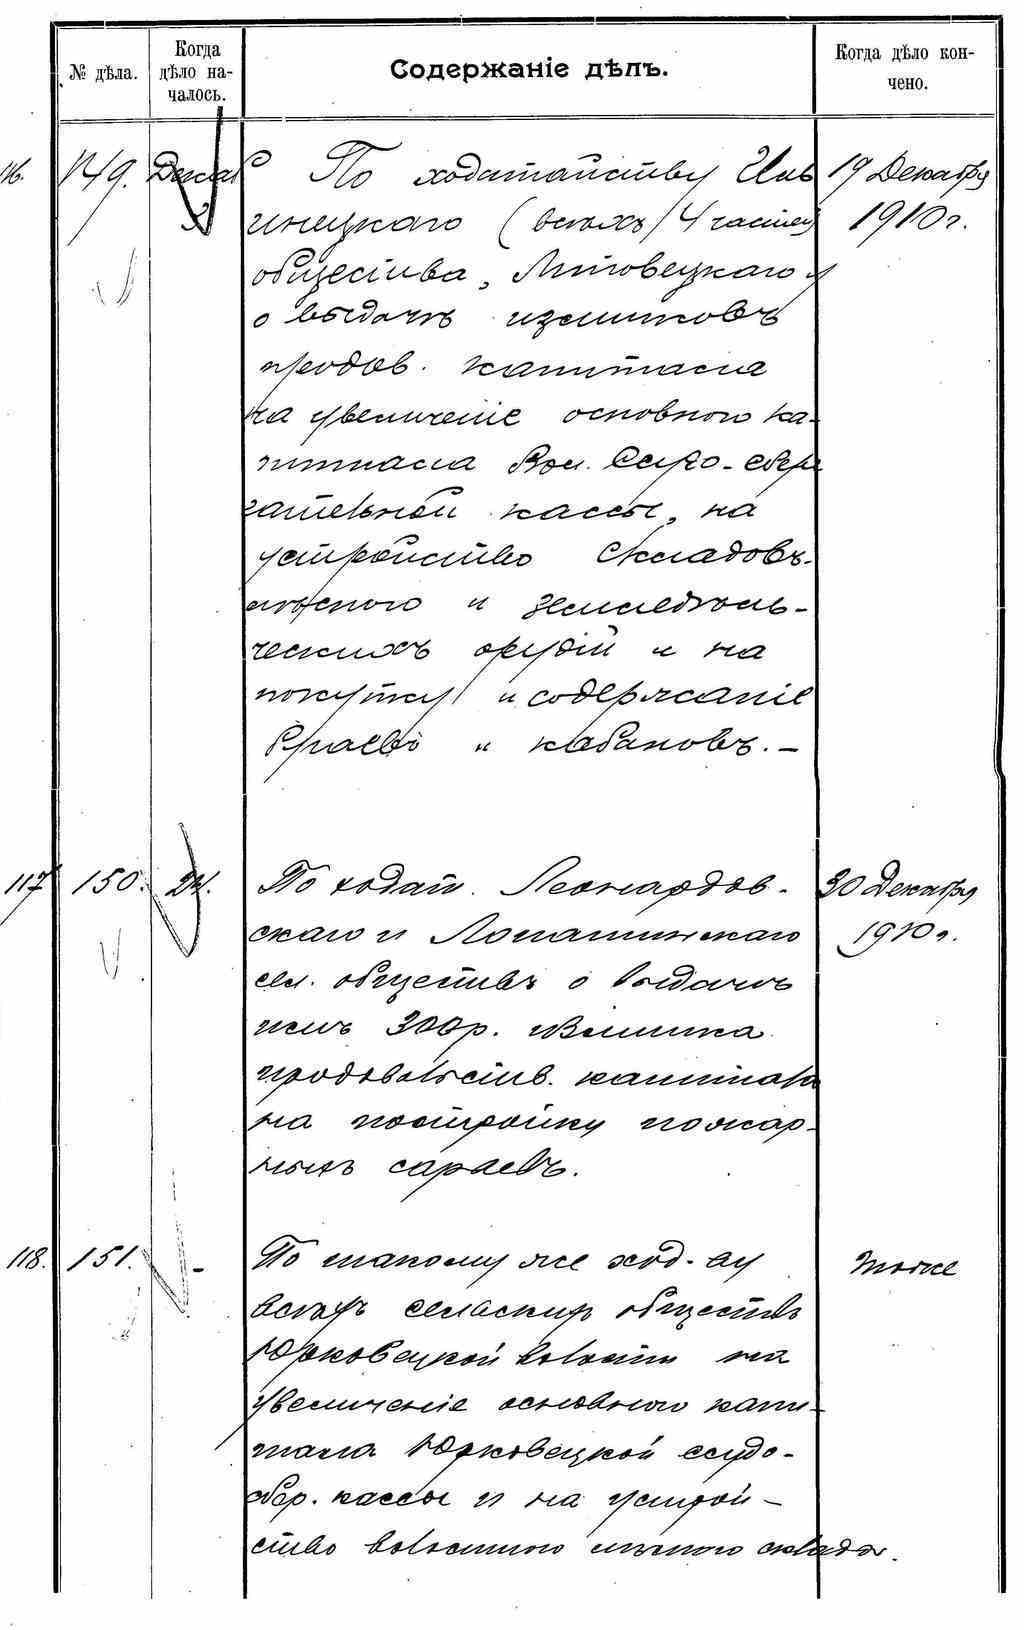 № дѣла.
Когда дѣло началось.
Содержаніе дѣлъ.
Когда дѣло кончено.
116. 149. Декаб
2
По ходатайству Иль
инецкаго (всѣхъ 4 частей)
общества, Литовецкаго
о выдачѣ излишковъ
продов. капитала
на увеличеніе основного ка-
питала Вол. Ссудо-сбере
гательной кассы, на
устройство складовъ
лѣсного и земледѣль-
ческихъ орудій и на
покупку и содержаніе
и кабановъ. -
19 Декабря
1910 г.
117 150. 24.
По ходат. Леонардов-
скаго и Лопатинскаго
сел. обществъ о выдачѣ
имъ 300 р. излишка
продовольств. капитала
на постройку пожар-
ныхъ сараевъ.
30 Декабря
1910 г.
118. 151. -
По такому же ход-ву
всѣхъ сельскихъ обществъ
Юрковецкой волости на
увеличеніе основного капи-
тала Юрковецкой ссудо-
сбер. кассы и на устрой-
ство волостного лѣсного склада.
тоже